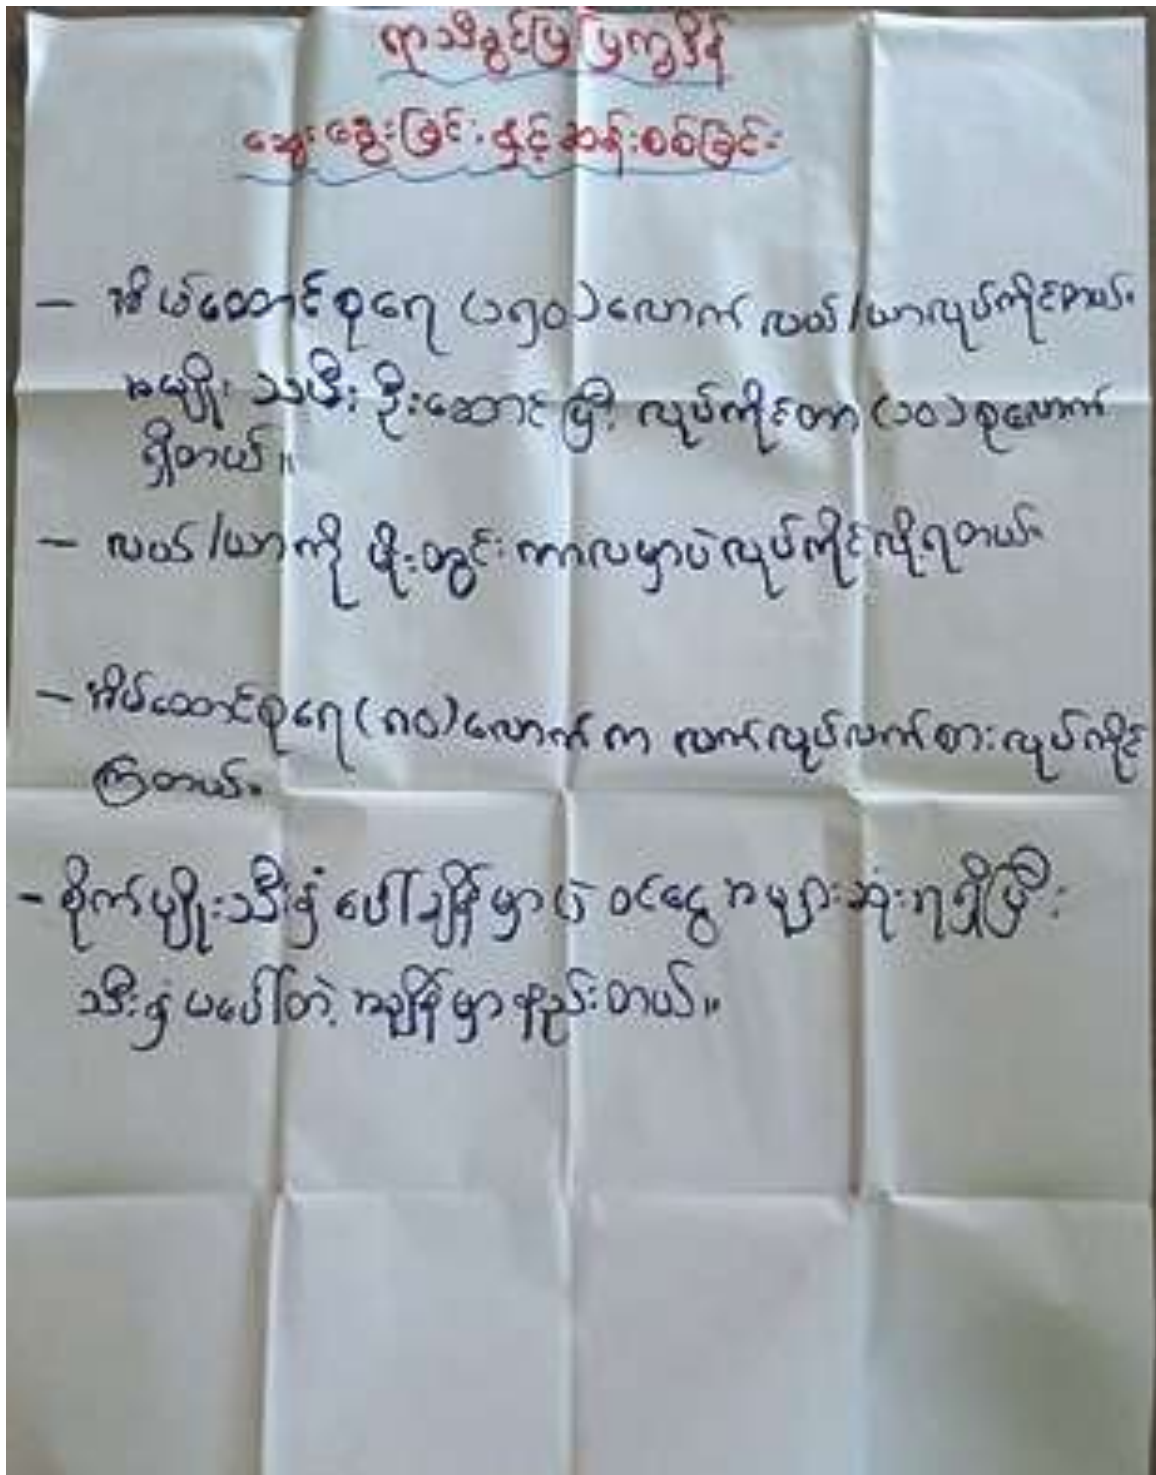 ရာသီခွင်ပြပြက္ခဒိန်
ဆွေးနွေးခြင်းနှင့်ဆန်းစစ်ခြင်း
– အိမ်ထောင်စုရေ (၁၇၀) လောက် လယ်/ယာလုပ်ကိုင်တယ်။
အမျိုးသမီး ဦးဆောင်ပြီး လုပ်ကိုင်တာ (၁၀) စုလောက်
ရှိတယ်။
– လယ်/ယာကို မိုးတွင်းကာလမှာပဲ လုပ်ကိုင်လို့ရတယ်။
– အိမ်ထောင်စုရေ (၈၀) လောက်က လက်လုပ်လက်စားလုပ်ကိုင်
ကြတယ်။
- စိုက်ပျိုးသီးနှံ ပေါ်ချိန်မှာပဲ ဝင်ငွေအများဆုံးရရှိပြီး
သီးနှံမပေါ်တဲ့ အချိန်မှာနည်းတယ်။